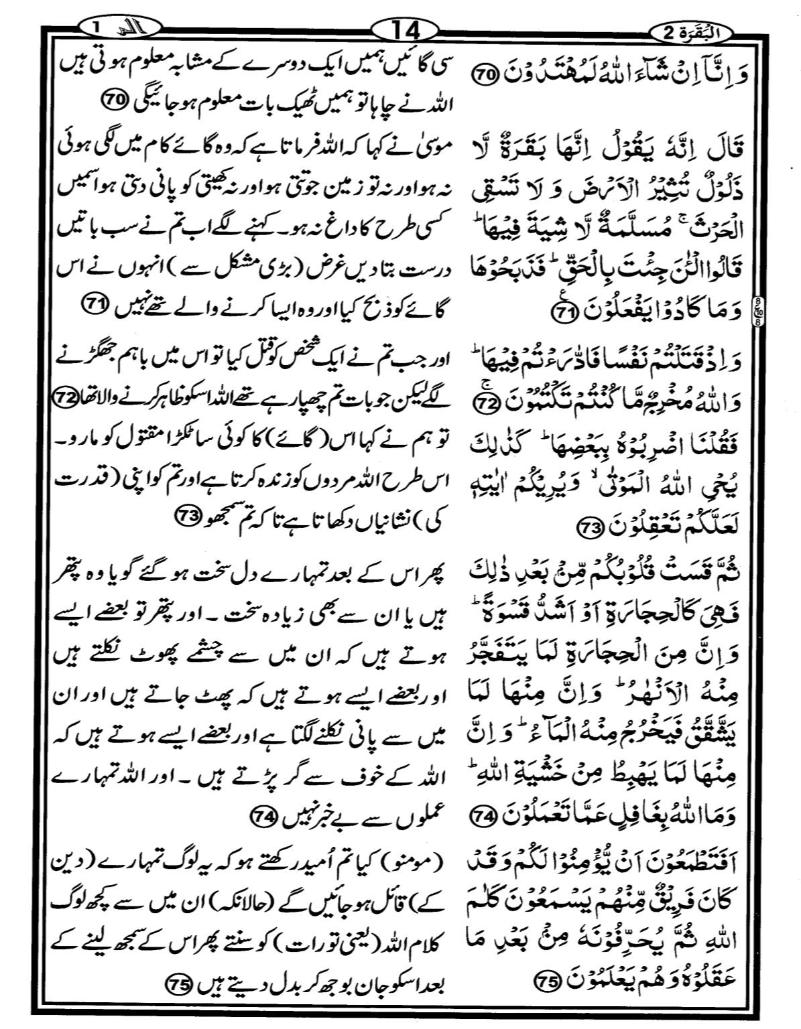 البقرة 2
14
الم 1
وَاِنَّاۤ اِنۡ شَآءَ اللّٰهُ لَمُهۡتَدُوۡنَ 70
قَالَ اِنَّهٗ يَقُوۡلُ اِنَّهَا بَقَرَةٌ لَّا
ذَلُوۡلٌ تُثِيۡرُ الۡاَرۡضَ وَ لَا تَسۡقِى
الۡحَرۡثَ‌ ۚ مُسَلَّمَةٌ لَّا شِيَةَ فِيۡهَا‌ ؕ
قَالُوا الۡـٰٔنَ جِئۡتَ بِالۡحَـقِّ‌ ؕ فَذَبَحُوۡهَا
وَمَا كَادُوۡا يَفۡعَلُوۡنَ‏ 71
وَ اِذۡ قَتَلۡتُمۡ نَفۡسًا فَادّٰرَءۡتُمۡ فِيۡهَا ‌ؕ
وَاللّٰهُ مُخۡرِجٌ مَّا كُنۡتُمۡ تَكۡتُمُوۡنَ‌ۚ 72
فَقُلۡنَا اضۡرِبُوۡهُ بِبَعۡضِهَا ‌ؕ كَذٰلِكَ
يُحۡىِ اللّٰهُ الۡمَوۡتٰى ۙ وَيُرِيۡکُمۡ اٰيٰتِهٖ
لَعَلَّكُمۡ تَعۡقِلُوۡنَ‏ 73
ثُمَّ قَسَتۡ قُلُوۡبُكُمۡ مِّنۡۢ بَعۡدِ ذٰلِكَ
فَهِىَ كَالۡحِجَارَةِ اَوۡ اَشَدُّ قَسۡوَةً ‌ ؕ
وَاِنَّ مِنَ الۡحِجَارَةِ لَمَا يَتَفَجَّرُ
مِنۡهُ الۡاَنۡهٰرُ‌ؕ وَاِنَّ مِنۡهَا لَمَا
يَشَّقَّقُ فَيَخۡرُجُ مِنۡهُ الۡمَآءُ‌ؕ وَاِنَّ
مِنۡهَا لَمَا يَهۡبِطُ مِنۡ خَشۡيَةِ اللّٰهِ‌ؕ
وَمَا اللّٰهُ بِغَافِلٍ عَمَّا تَعۡمَلُوۡنَ‏ 74
اَفَتَطۡمَعُوۡنَ اَنۡ يُّؤۡمِنُوۡا لَـكُمۡ وَقَدۡ
كَانَ فَرِيۡقٌ مِّنۡهُمۡ يَسۡمَعُوۡنَ کَلٰمَ
اللّٰهِ ثُمَّ يُحَرِّفُوۡنَهٗ مِنۡۢ بَعۡدِ مَا
عَقَلُوۡهُ وَهُمۡ يَعۡلَمُوۡنَ‏ 75
سی گائیں ہمیں ایک دوسرے کے مشابہ معلوم ہوتی ہیں
اللہ نے چاہا تو ہمیں ٹھیک بات معلوم ہو جائیگی 70
موسیٰ نے کہا کہ اللہ فرماتا ہے کہ وہ گائے کام میں لگی ہوئی
نہ ہو اور نہ تو زمین جوتتی ہو اور نہ کھیتی کو پانی دیتی ہو اسمیں
کسی طرح کا داغ نہ ہو۔ کہنے لگے اب تم نے سب باتیں
درست بتا دیں غرض (بڑی مشکل سے) انہوں نے اس
گائے کو ذبح کیا اور وہ ایسا کرنے والے تھے نہیں 71
اور جب تم نے ایک شخص کو قتل کیا تو اس میں باہم جھگڑنے
لگے لیکن جو بات تم چھپا رہے تھے اللہ اسکو ظاہر کرنے والا تھا 72
تو ہم نے کہا اس (گائے) کا کوئی سا ٹکڑا مقتول کو مارو۔
اس طرح اللہ مردوں کو زندہ کرتا ہے اور تم کو اپنی (قدرت
کی) نشانیاں دکھاتا ہے تا کہ تم سمجھو 73
پھر اس کے بعد تمہارے دل سخت ہو گئے گویا وہ پتھر
ہیں یا ان سے بھی زیادہ سخت ۔ اور پتھر تو بعضے ایسے
ہوتے ہیں کہ ان میں سے چشمے پھوٹ نکلتے ہیں
اور بعضے ایسے ہوتے ہیں کہ پھٹ جاتے ہیں اور ان
میں سے پانی نکلنے لگتا ہے اور بعضے ایسے ہوتے ہیں کہ
اللہ کے خوف سے گر پڑتے ہیں ۔ اور اللہ تمہارے
عملوں سے بے خبر نہیں 74
(مومنو) کیا تم اُمید رکھتے ہو کہ یہ لوگ تمہارے (دین
کے) قائل ہو جائیں گے (حالانکہ) ان میں سے کچھ لوگ
کلام اللہ (یعنی تورات) کو سنتے پھر اس کے سمجھ لینے کے
بعد اسکو جان بوجھ کر بدل دیتے ہیں 75